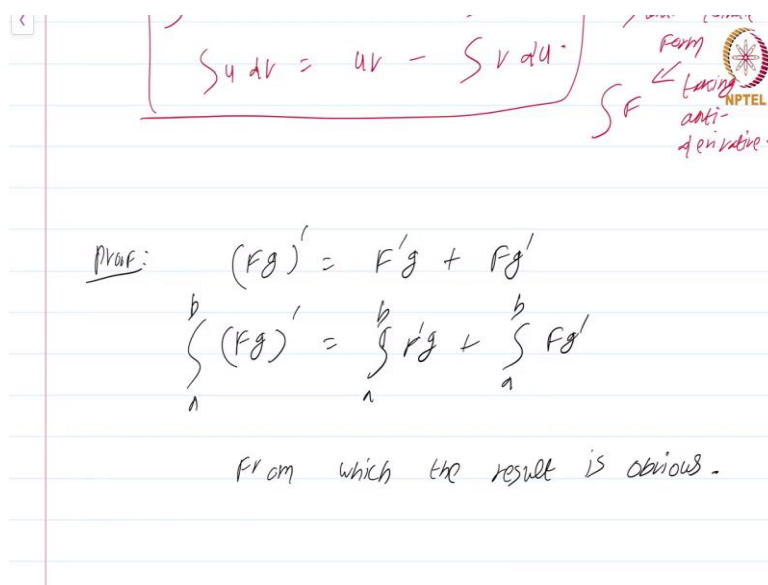 ∫u dv = uv - ∫v du.
form
∫F ⇐ taking
NPTEL
anti-
derivative.
Proof: (Fg)' = F'g + Fg'
∫_a^b (Fg)' = ∫_a^b F'g + ∫_a^b Fg'
From which the result is obvious.